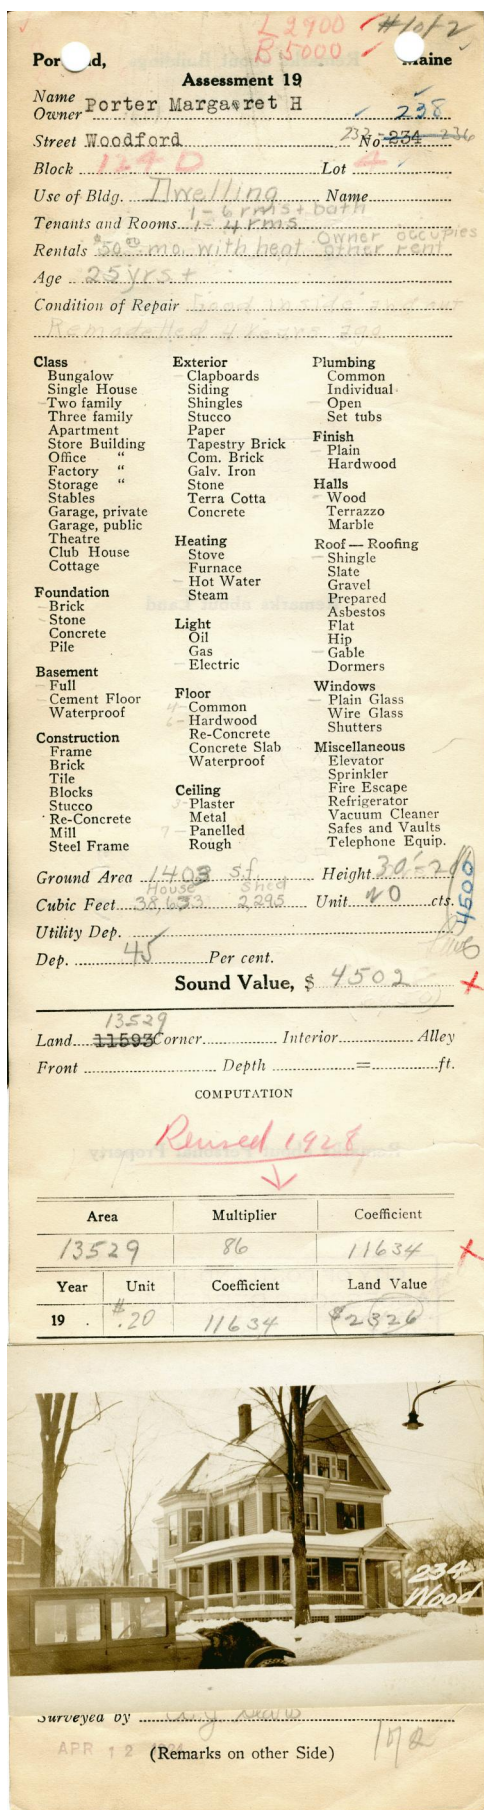 L 2900 # 1 of 2
B 5000
Por nd, Maine
Assessment 19
Name
Owner Porter Margaret H 238
Street Woodford No. 234 236
Block 124 D Lot 4
Use of Bldg. Dwelling Name
1 - 6 rms + bath
Tenants and Rooms 1 - 4 rms
Owner occupies
Rentals $50.00 mo. with heat other rent
Age 25 yrs +
Condition of Repair Good inside and out
Remodelled 4 years ago
Class
Bungalow
Single House
- Two family
Three family
Apartment
Store Building
Office "
Factory "
Storage "
Stables
Garage, private
Garage, public
Theatre
Club House
Cottage
Foundation
- Brick
- Stone
Concrete
Pile
Basement
- Full
- Cement Floor
Waterproof
Construction
Frame
Brick
Tile
Blocks
Stucco
Re-Concrete
Mill
Steel Frame
Exterior
- Clapboards
Siding
- Shingles
Stucco
Paper
Tapestry Brick
Com. Brick
Galv. Iron
Stone
Terra Cotta
Concrete
Heating
Stove
Furnace
- Hot Water
Steam
Light
Oil
Gas
- Electric
Floor
4 - Common
6 - Hardwood
Re-Concrete
Concrete Slab
Waterproof
Ceiling
3 - Plaster
Metal
7 - Panelled
Rough
Plumbing
Common
Individual
- Open
Set tubs
Finish
- Plain
Hardwood
Halls
- Wood
Terrazzo
Marble
Roof — Roofing
- Shingle
Slate
Gravel
Prepared
Asbestos
Flat
Hip
- Gable
Dormers
Windows
- Plain Glass
Wire Glass
Shutters
Miscellaneous
Elevator
Sprinkler
Fire Escape
Refrigerator
Vacuum Cleaner
Safes and Vaults
Telephone Equip.
Ground Area 1403 s.f. Height 30'
House Shed
Cubic Feet 38,633 2,295 Unit cts.
4500
Utility Dep.
Dep. 45 Per cent.
Sound Value, $ 4502 x
13529
Land 11593 Corner Interior Alley
Front Depth = ft.
COMPUTATION
Revised 1928
Area Multiplier Coefficient
13529 86 11634 x
Year Unit Coefficient Land Value
19 . $.20 11634 $2326
234
Wood
Surveyed by
APR 12
(Remarks on other Side) 172